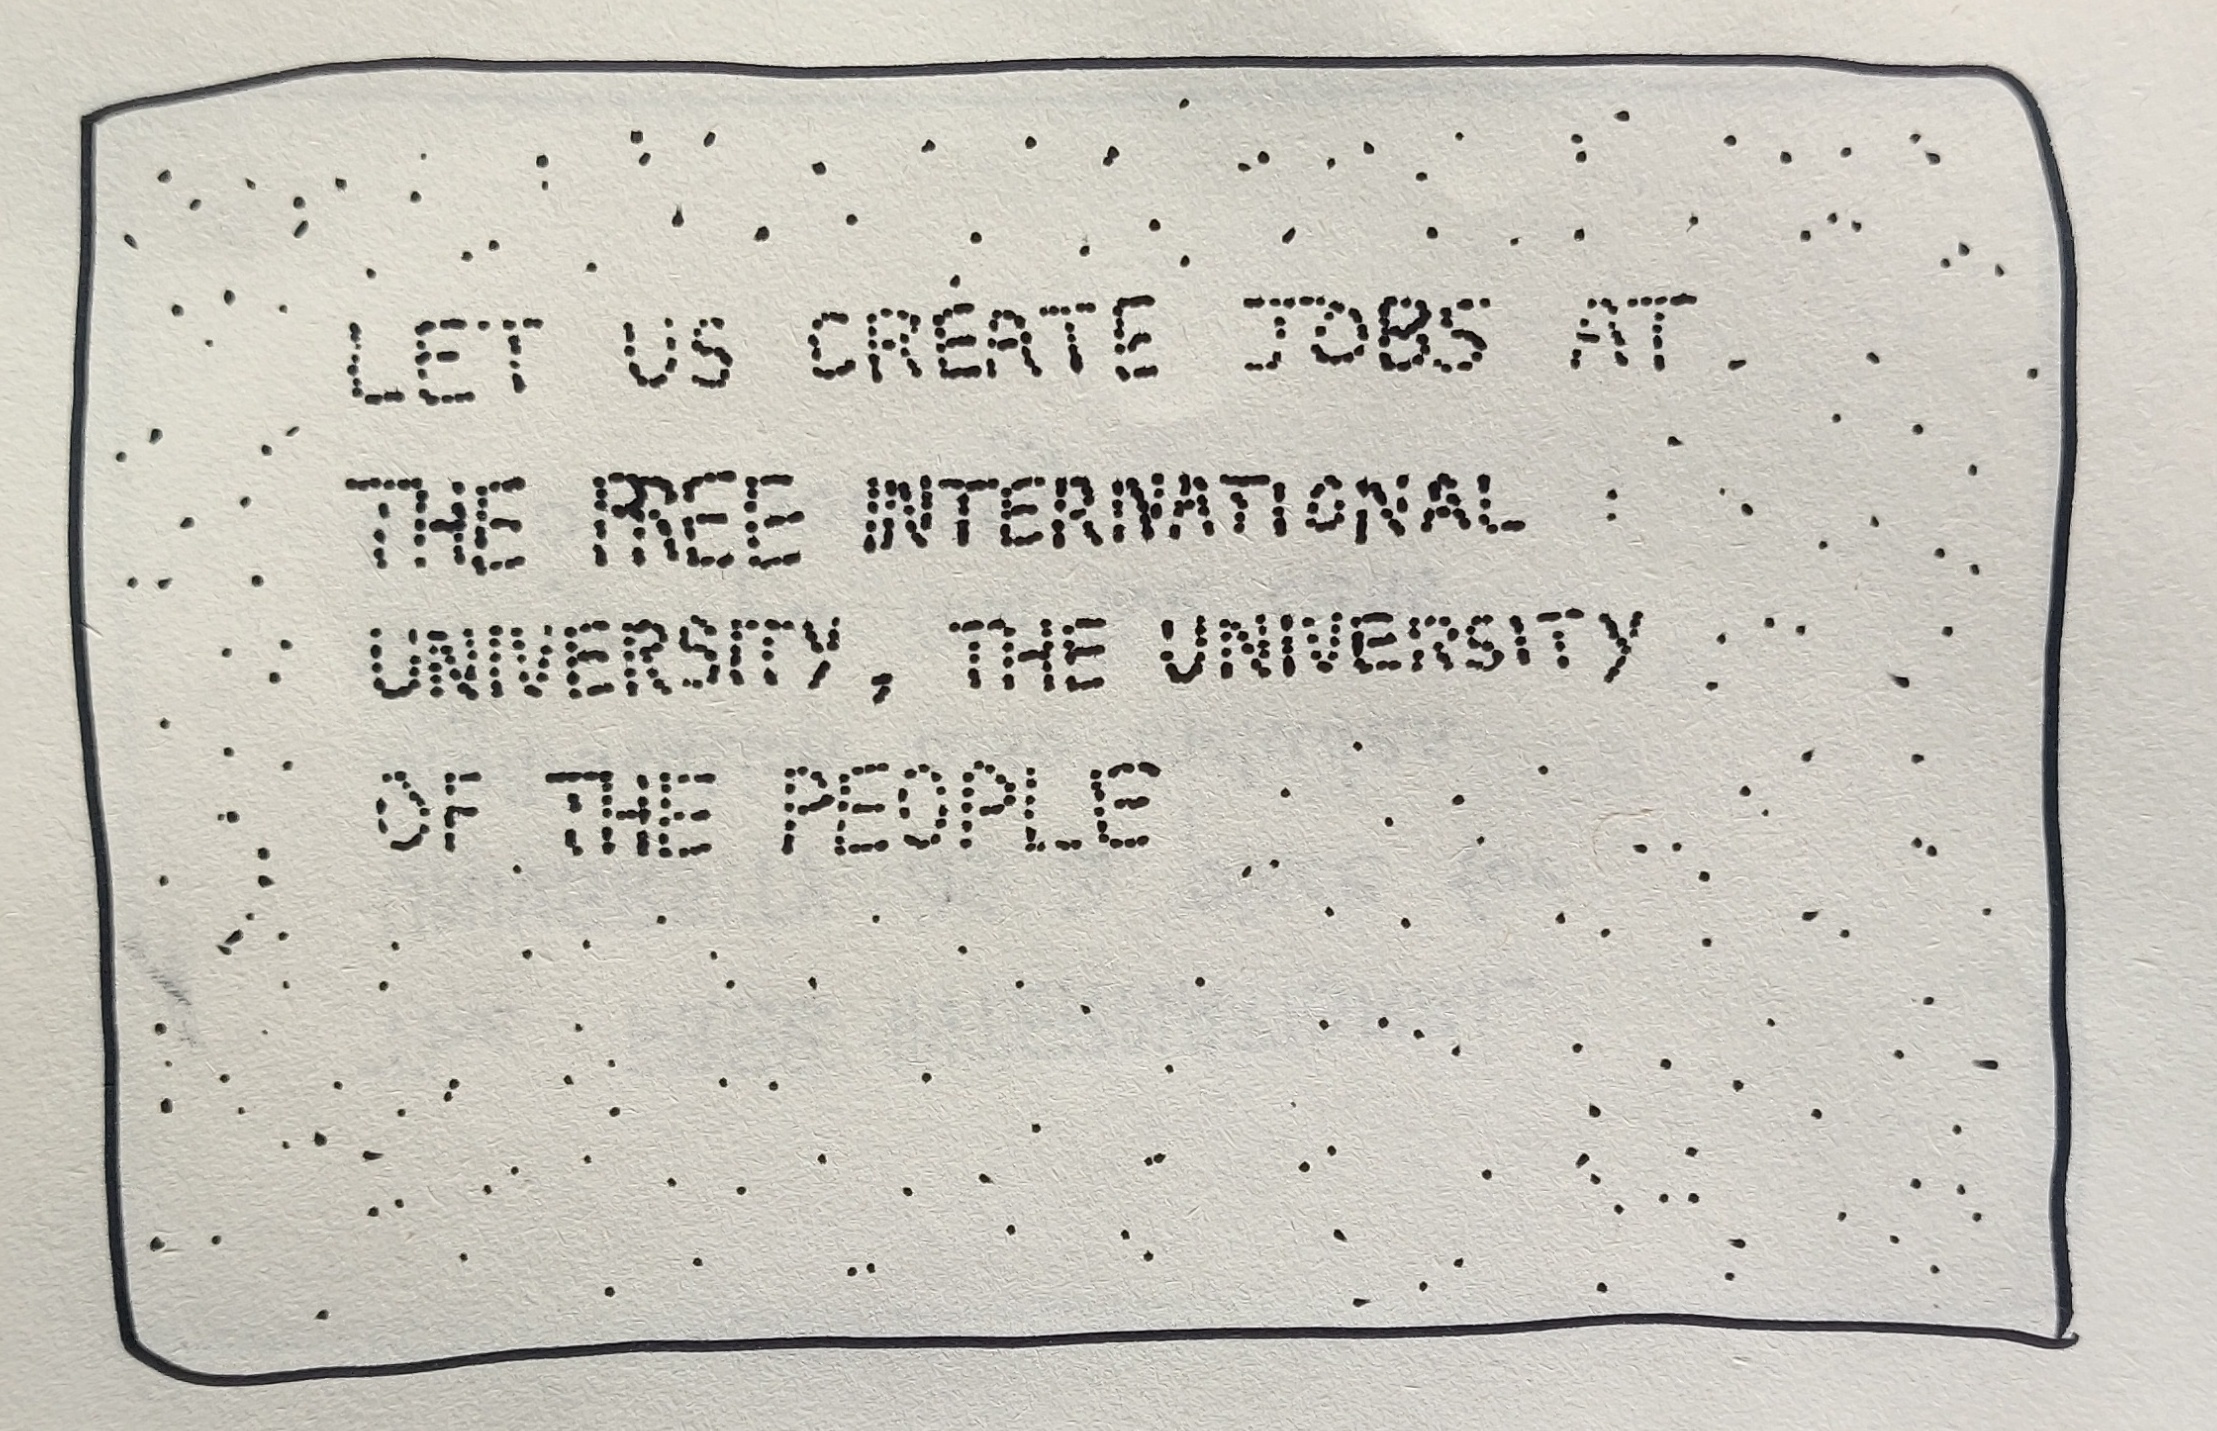 LET US CREATE JOBS AT
THE FREE INTERNATIONAL
UNIVERSITY, THE UNIVERSITY
OF THE PEOPLE